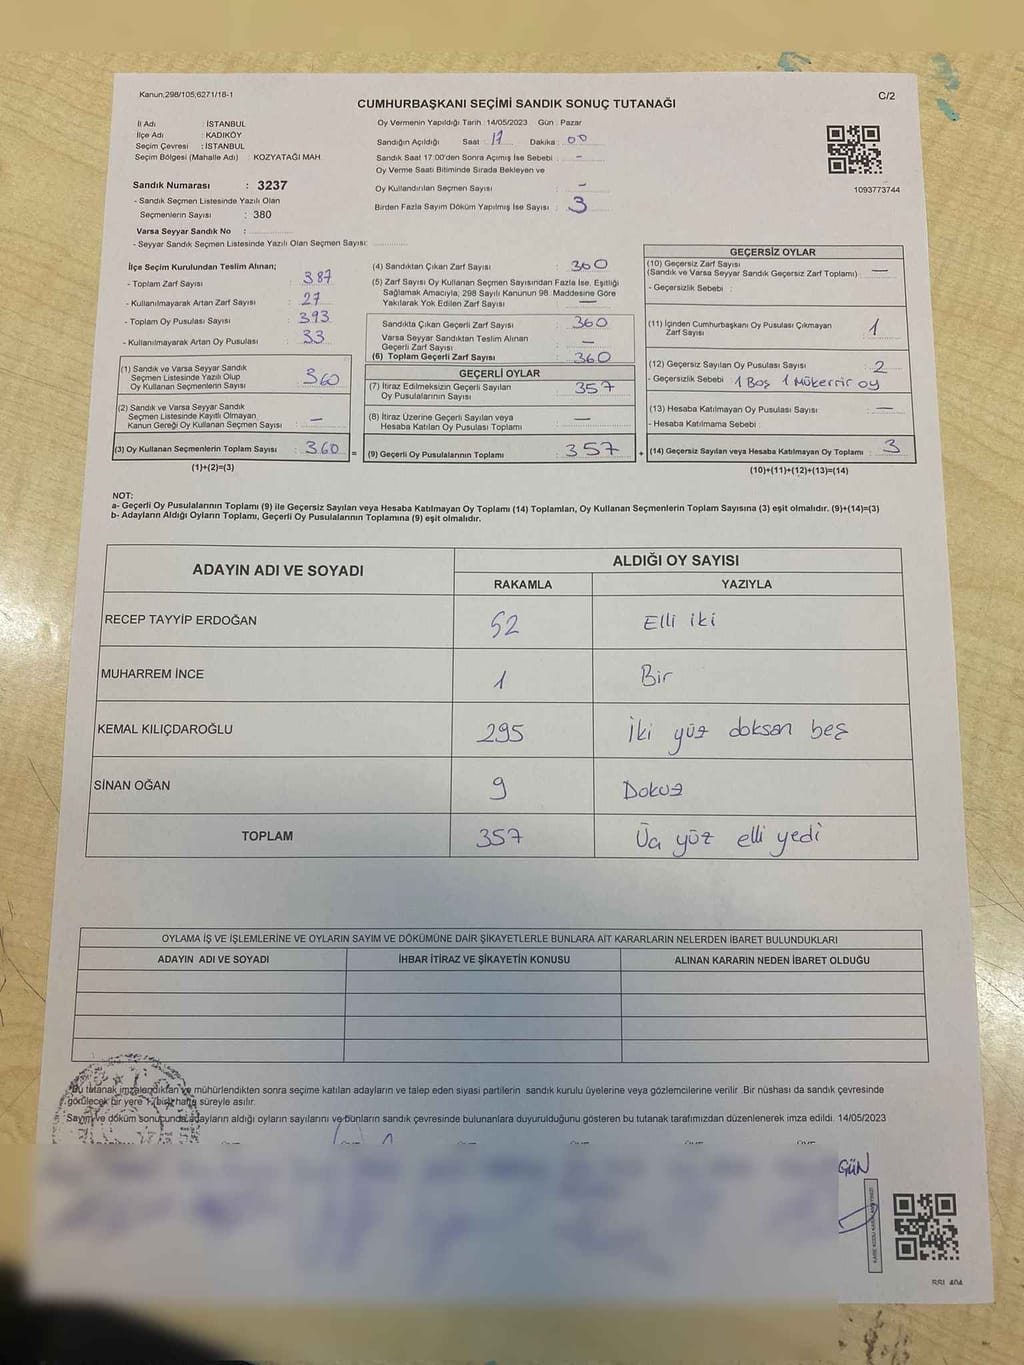 Kanun;298/105;6271/18-1
CUMHURBAŞKANI SEÇİMİ SANDIK SONUÇ TUTANAĞI
C/2
İl Adı : İSTANBUL
İlçe Adı : KADIKÖY
Seçim Çevresi : İSTANBUL
Seçim Bölgesi (Mahalle Adı) : KOZYATAĞI MAH
Sandık Numarası : 3237
- Sandık Seçmen Listesinde Yazılı Olan
Seçmenlerin Sayısı : 380
Varsa Seyyar Sandık No :
- Seyyar Sandık Seçmen Listesinde Yazılı Olan Seçmen Sayısı:
Oy Vermenin Yapıldığı Tarih : 14/05/2023 Gün : Pazar
Sandığın Açıldığı Saat : 17 Dakika : 00
Sandık Saat 17:00'den Sonra Açımış İse Sebebi : -
Oy Verme Saati Bitiminde Sırada Bekleyen ve
Oy Kullandırılan Seçmen Sayısı : -
Birden Fazla Sayım Döküm Yapılmış İse Sayısı : 3
1093773744
İlçe Seçim Kurulundan Teslim Alınan;
- Toplam Zarf Sayısı : 387
- Kullanılmayarak Artan Zarf Sayısı : 27
- Toplam Oy Pusulası Sayısı : 393
- Kullanılmayarak Artan Oy Pusulası : 33
(1) Sandık ve Varsa Seyyar Sandık
Seçmen Listesinde Yazılı Olup
Oy Kullanan Seçmenlerin Sayısı : 360
(2) Sandık ve Varsa Seyyar Sandık
Seçmen Listesinde Kayıtlı Olmayan
Kanun Gereği Oy Kullanan Seçmen Sayısı : -
(3) Oy Kullanan Seçmenlerin Toplam Sayısı : 360 =
(1)+(2)=(3)
(4) Sandıktan Çıkan Zarf Sayısı : 360
(5) Zarf Sayısı Oy Kullanan Seçmen Sayısından Fazla İse, Eşitliği
Sağlamak Amacıyla, 298 Sayılı Kanunun 98. Maddesine Göre
Yakılarak Yok Edilen Zarf Sayısı : -
Sandıkta Çıkan Geçerli Zarf Sayısı : 360
Varsa Seyyar Sandıktan Teslim Alınan
Geçerli Zarf Sayısı : -
(6) Toplam Geçerli Zarf Sayısı : 360
GEÇERLİ OYLAR
(7) İtiraz Edilmeksizin Geçerli Sayılan
Oy Pusulalarının Sayısı : 357
(8) İtiraz Üzerine Geçerli Sayılan veya
Hesaba Katılan Oy Pusulası Toplamı : -
(9) Geçerli Oy Pusulalarının Toplamı : 357 +
GEÇERSİZ OYLAR
(10) Geçersiz Zarf Sayısı
(Sandık ve Varsa Seyyar Sandık Geçersiz Zarf Toplamı) : -
- Geçersizlik Sebebi :
(11) İçinden Cumhurbaşkanı Oy Pusulası Çıkmayan
Zarf Sayısı : 1
(12) Geçersiz Sayılan Oy Pusulası Sayısı : 2
- Geçersizlik Sebebi : 1 Boş 1 Mükerrir oy
(13) Hesaba Katılmayan Oy Pusulası Sayısı : -
- Hesaba Katılmama Sebebi :
(14) Geçersiz Sayılan veya Hesaba Katılmayan Oy Toplamı : 3
(10)+(11)+(12)+(13)=(14)
NOT:
a- Geçerli Oy Pusulalarının Toplamı (9) ile Geçersiz Sayılan veya Hesaba Katılmayan Oy Toplamı (14) Toplamları, Oy Kullanan Seçmenlerin Toplam Sayısına (3) eşit olmalıdır. (9)+(14)=(3)
b- Adayların Aldığı Oyların Toplamı, Geçerli Oy Pusulalarının Toplamına (9) eşit olmalıdır.
ADAYIN ADI VE SOYADI
ALDIĞI OY SAYISI
RAKAMLA YAZIYLA
RECEP TAYYİP ERDOĞAN 52 Elli iki
MUHARREM İNCE 1 Bir
KEMAL KILIÇDAROĞLU 295 İki yüz doksan beş
SİNAN OĞAN 9 Dokuz
TOPLAM 357 Üç yüz elli yedi
OYLAMA İŞ VE İŞLEMLERİNE VE OYLARIN SAYIM VE DÖKÜMÜNE DAİR ŞİKAYETLERLE BUNLARA AİT KARARLARIN NELERDEN İBARET BULUNDUKLARI
ADAYIN ADI VE SOYADI İHBAR İTİRAZ VE ŞİKAYETİN KONUSU ALINAN KARARIN NEDEN İBARET OLDUĞU
Bu tutanak imzalandıktan ve mühürlendikten sonra seçime katılan adayların ve talep eden siyasi partilerin sandık kurulu üyelerine veya gözlemcilerine verilir. Bir nüshası da sandık çevresinde
görülecek bir yere 1 (bir) hafta süreyle asılır.
Sayım ve döküm sonucunda adayların aldığı oyların sayılarını ve bunların sandık çevresinde bulunanlara duyurulduğunu gösteren bu tutanak tarafımızdan düzenlenerek imza edildi. 14/05/2023
GÜN